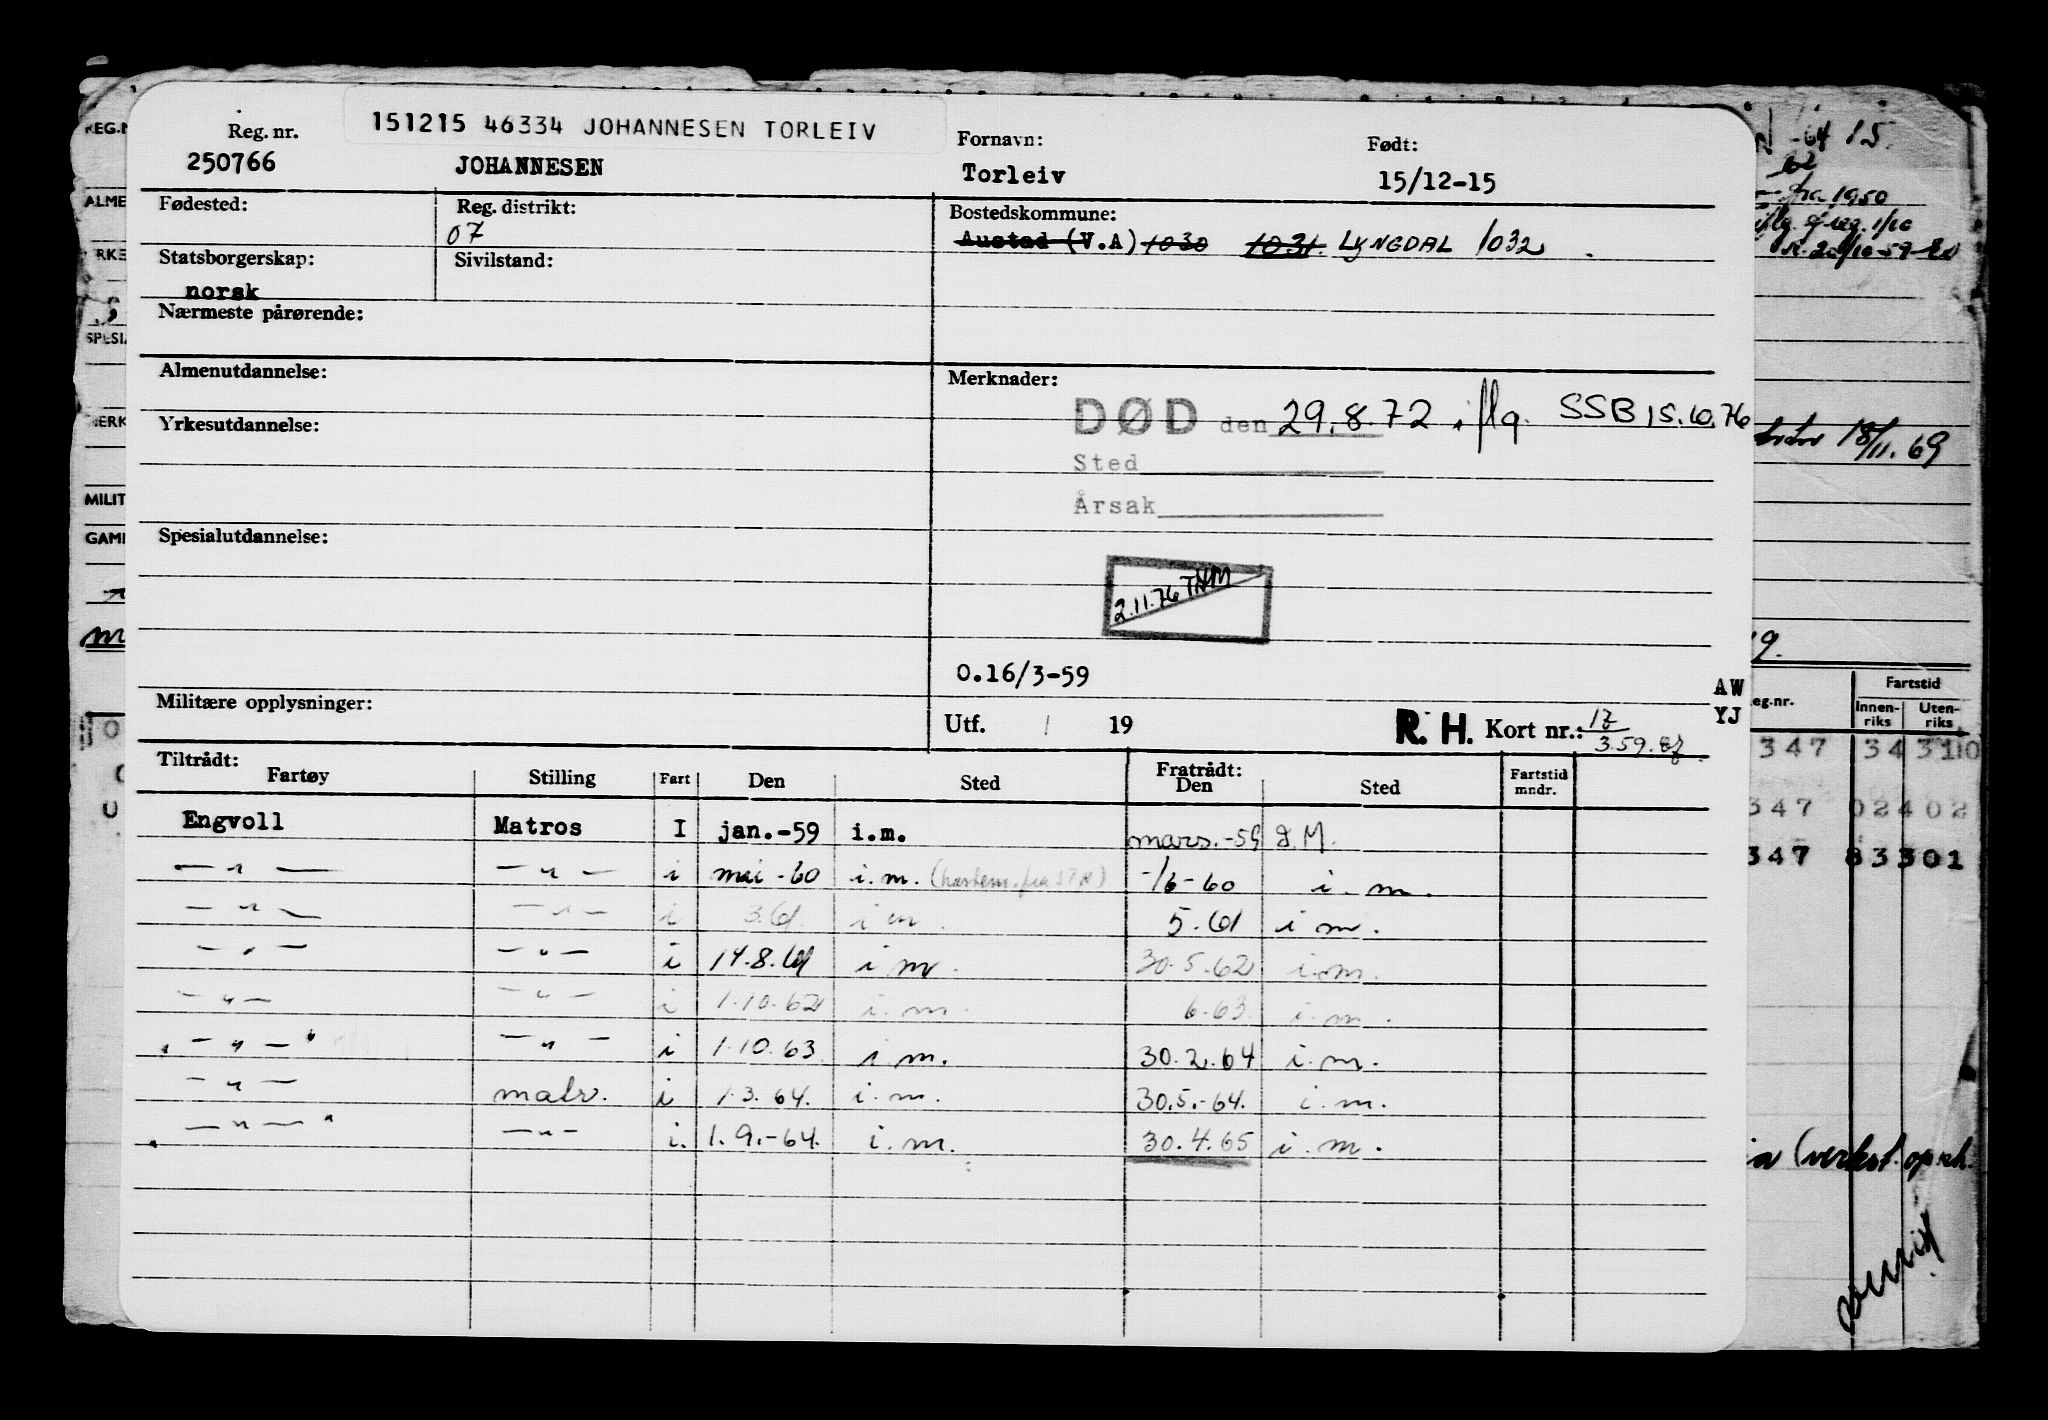 151215 46334 JOHANNESEN TORLEIV
Reg. nr. Fornavn: Født:
250766 JOHANNESEN Torleiv 15/12-15
Fødested: Reg. distrikt: Bostedskommune:
07 Austad (V.A) 1030 1031. LYNGDAL 1032
Statsborgerskap: Sivilstand:
norsk
Nærmeste pårørende:
Almenutdannelse: Merknader:
DØD den 29.8.72 iflg. SSB 15.10.76
Yrkesutdannelse:
Sted
Årsak
Spesialutdannelse:
2.11.76 THM
0.16/3-59
Militære opplysninger:
AW
YJ
Utf. / 19 R.H. Kort nr.: 17/3.59.
Tiltrådt: Fratrådt:
Fartøy Stilling Fart Den Sted Den Sted Fartstid mndr.
Engvoll Matros I jan.-59 i.m. mars.-59 I.M.
— " — — " — i mai -60 i.m. -/6-60 i.m.
— " — — " — i 3.61. i m. 5.61 i m.
— " — — " — i 14.8.61 i m. 30.5.62 i.m.
— " — — " — i 1.10.62 i.m. 6.63. i m.
— " — " — " — i 1.10.63 i.m. 30.2.64 i.m.
— " — matr. i 1.3.64. i.m. 30.5.-64. i.m.
— " — " — " — i. 1.9.-64. i.m. 30.4.65 i.m.
REG.N
ALME
RKE
SPESIA
MERK
MILIT
GAMI
m
O
U
-64 15.
62
fra 1950
iflg. reg. 1/10
18/11. 69
9.
eg.nr. Fartstid
Innen-riks Uten-riks
347 34 3110
347 024 02
347 83301
(verkst.